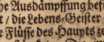 he Ausdämpffung bef
/ die Lebens-Geister
Flüsse des Haupts